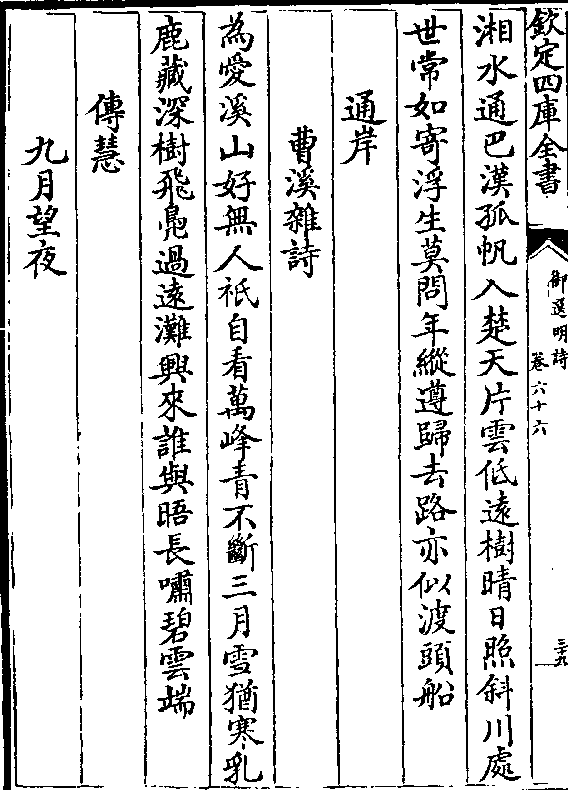 欽定四庫全書
御選明詩
卷六十六
三十九
湘水通巴漢孤帆入楚天片雲低遠樹晴日照斜川處
世常如寄浮生莫問年縱遵歸去路亦似渡頭船
通岸
曹溪雜詩
為愛溪山好無人祇自看萬峰青不斷三月雪猶寒乳
鹿藏深樹飛鳧過遠灘興來誰與晤長嘯碧雲端
傳慧
九月望夜